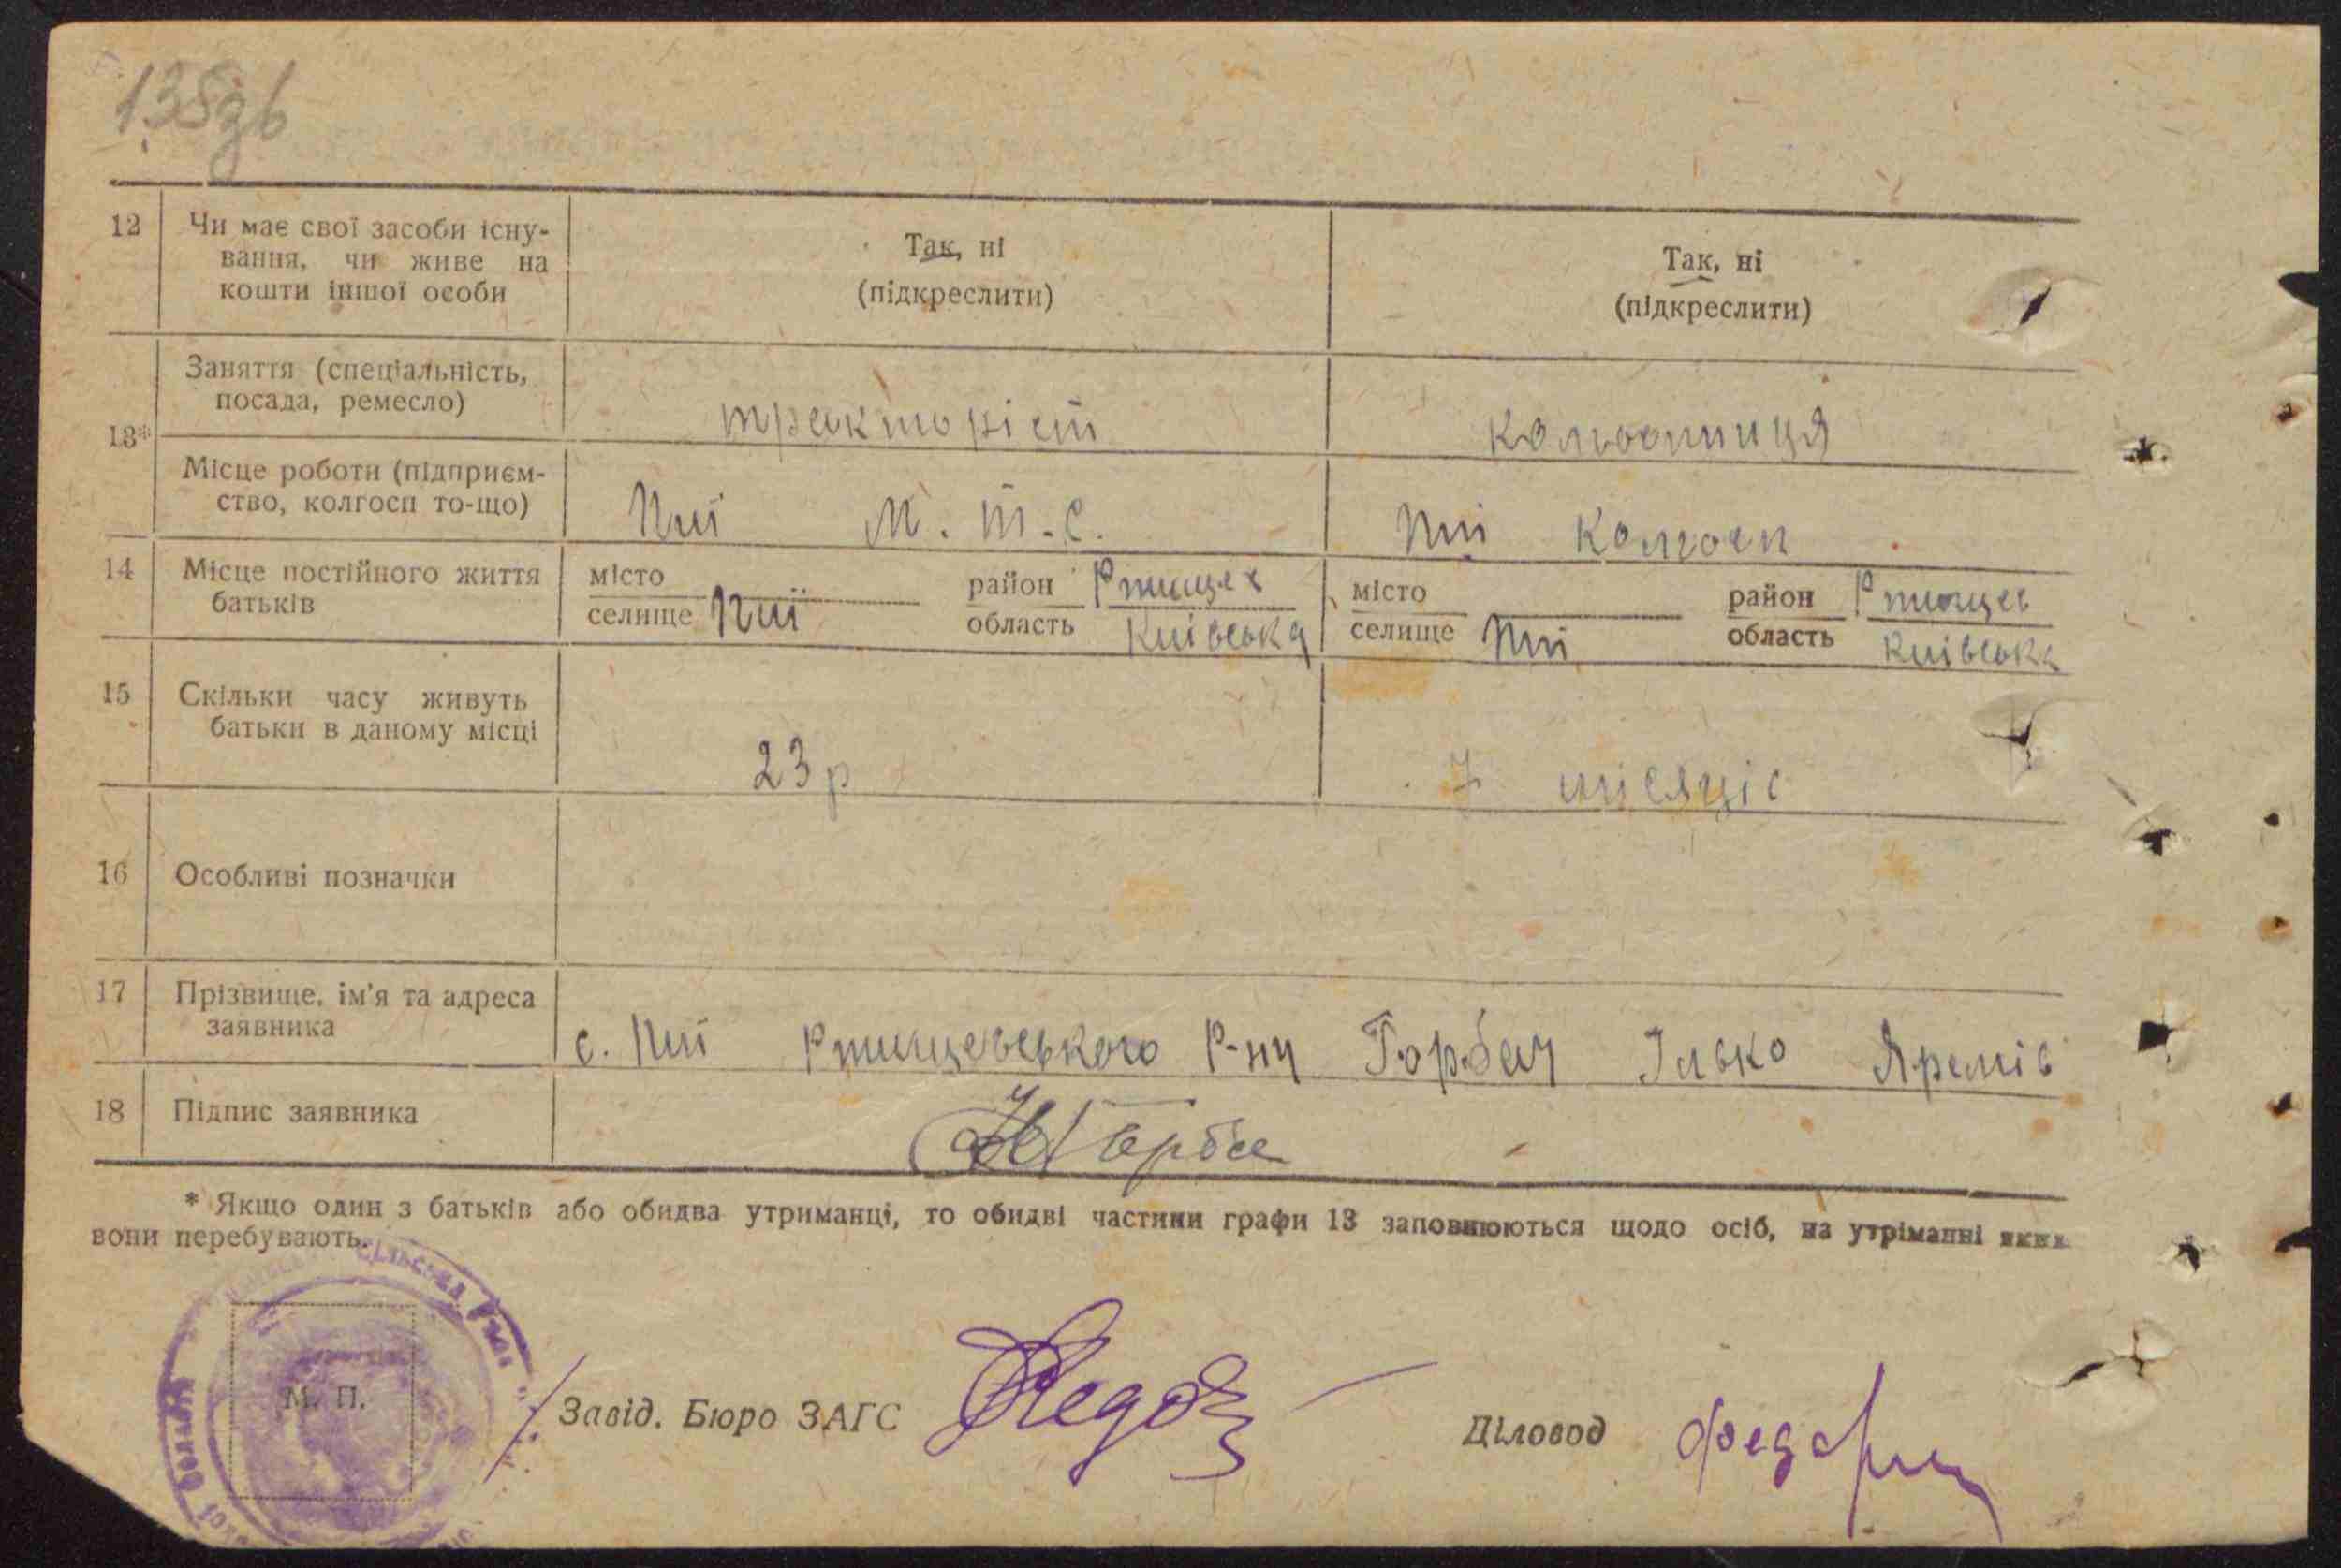 138зв
12 Чи має свої засоби існу-
вання, чи живе на
кошти іншої особи
Так, ні
(підкреслити)
Так, ні
(підкреслити)
13*
Заняття (спеціальність,
посада, ремесло)
тракторіст
колгоспниця
Місце роботи (підприєм-
ство, колгосп то-що)
Пиї М.Т.С.
Пиї Колгосп
14 Місце постійного життя
батьків
місто
селище Пиї
район Ртищев
область Київська
місто
селище Пиї
район Ртищев
область Київська
15 Скільки часу живуть
батьки в даному місці
23 р
7 місяців
16 Особливі позначки
17 Прізвище, ім'я та адреса
заявника
с. Пиї Ртищевського Р-ну Горбач Ілько Яремів
18 Підпис заявника
Горбач
* Якщо один з батьків або обидва утриманці, то обидві частини графи 13 заповнюються щодо осіб, на утріманні яких
вони перебувають.
Сільська Рада
М. П.
Завід. Бюро ЗАГС
Діловод